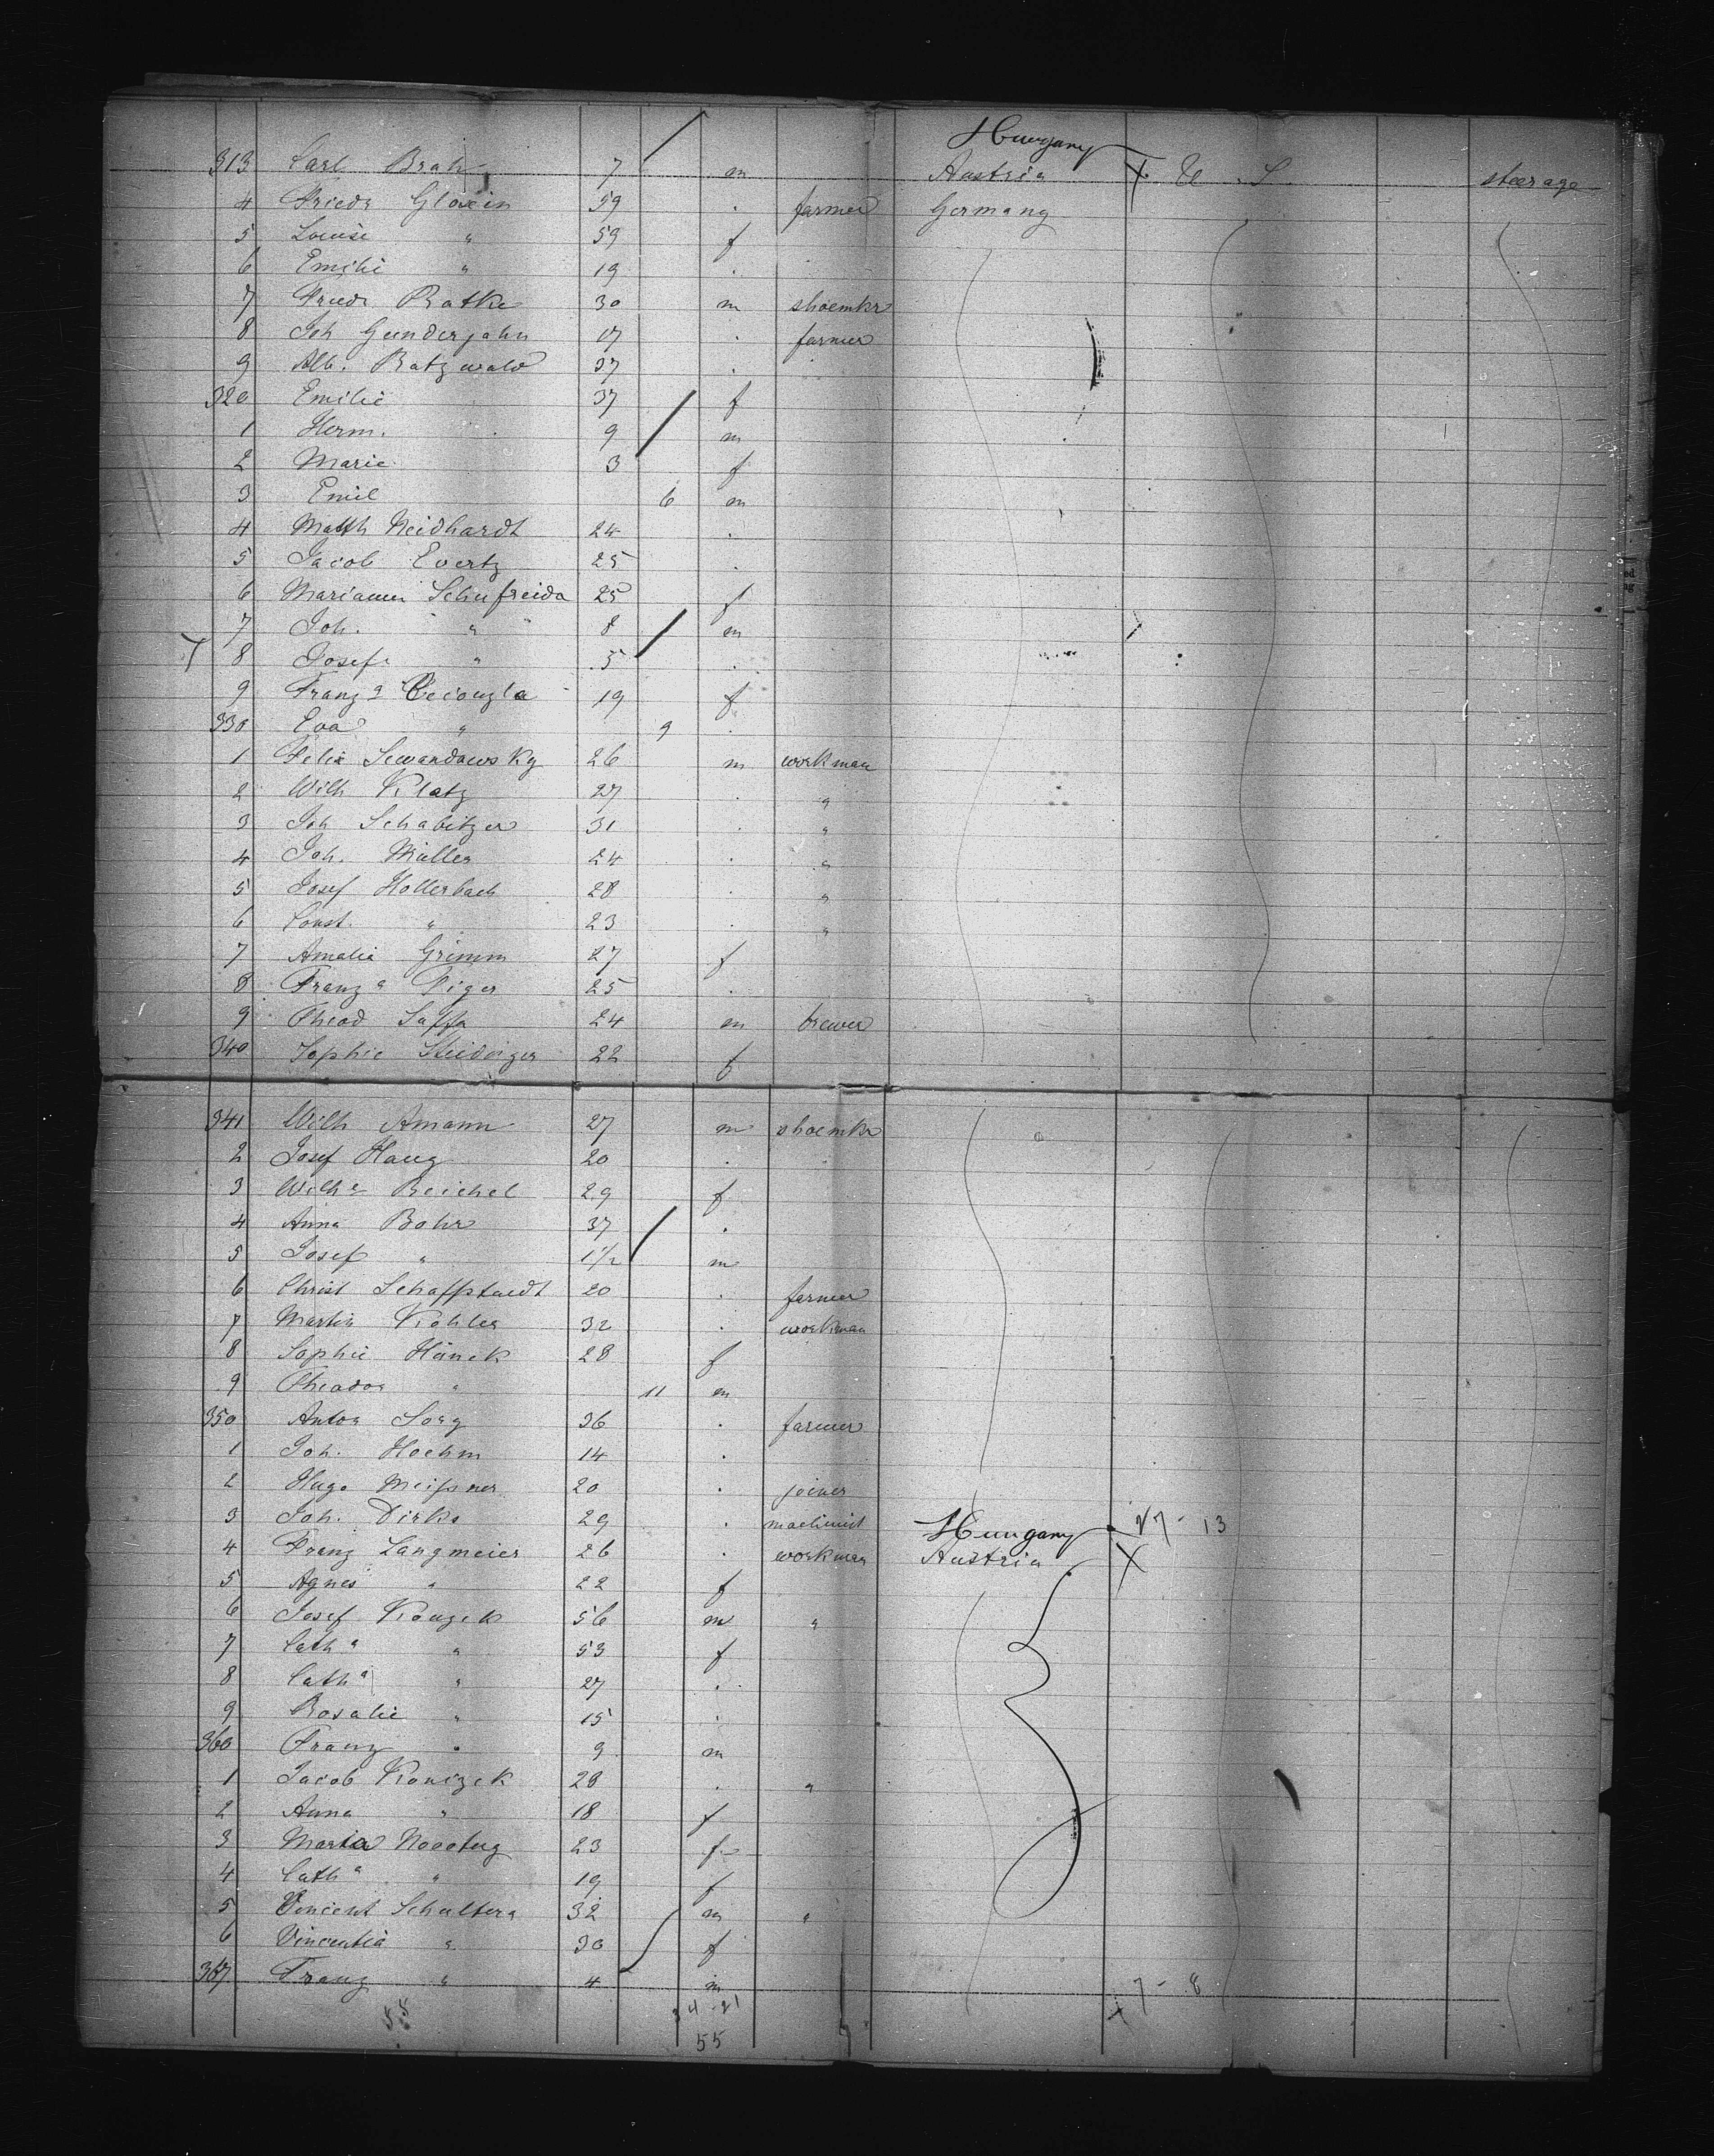 Hungary
313 Carl Brah 7 m Austria X U. S. steerage
4 Friedr Gloxin 59 . farmer Germany
5 Louise " 59 f
6 Emilie " 19 .
7 Friedr Ratke 30 m shoemkr
8 Joh Gunderjahn 17 . farmer
9 Alb. Ratzwald 37 .
320 Emilie 37 f
1 Herm. 9 m
2 Marie 3 f
3 Emil 6 m
4 Matth Neidhardt 24 .
5 Jacob Evertz 25 .
6 Mariann Schufreida 25 f
7 Joh. " 8 m
8 Josef " 5 .
9 Franza 19 f
330 Eva " 9 .
1 Felix Lewandowsky 26 m workman
2 Wilh Klatz 27 . "
3 Joh Schabitzer 31 . "
4 Joh. Müller 24 . "
5 Josef Hollerbach 28 . "
6 Const. " 23 . "
7 Amalia Grimm 27 f
8 Franza 25 .
9 Theod Saffa 24 m brewer
340 Sophie Steidinger 22 f
341 Wilh Amann 27 m shoemkr
2 Josef Haug 20 .
3 Wilhe Reichel 29 f
4 Anna Bohr 37 .
5 Josef " 1 1/2 m
6 Christ Schaffstaedt 20 . farmer
7 Martin Kohler 32 . workman
8 Sophie Hänck 28 f
9 Theodor " 11 m
350 Anton Sorg 36 . farmer
1 Joh. Hoehm 14 .
2 Hugo Meissner 20 . joiner
3 Joh. Dirks 29 . machinist Hungary 27 - 13
4 Franz Langmeier 26 . workman Austria X
5 Agnes " 22 f
6 Josef Konzek 56 m "
7 Catha " 53 f
8 Catha " 27 .
9 Rosalie " 15 .
360 Franz " 9 m
1 Jacob Konizek 28 . "
2 Anna " 18 f
3 Maria 23 f
4 Catha " 19 f
5 Vincent Schultera 32 m "
6 Vincentia " 30 f
367 Franz " 4 m X 7 - 8
55 34-21
55